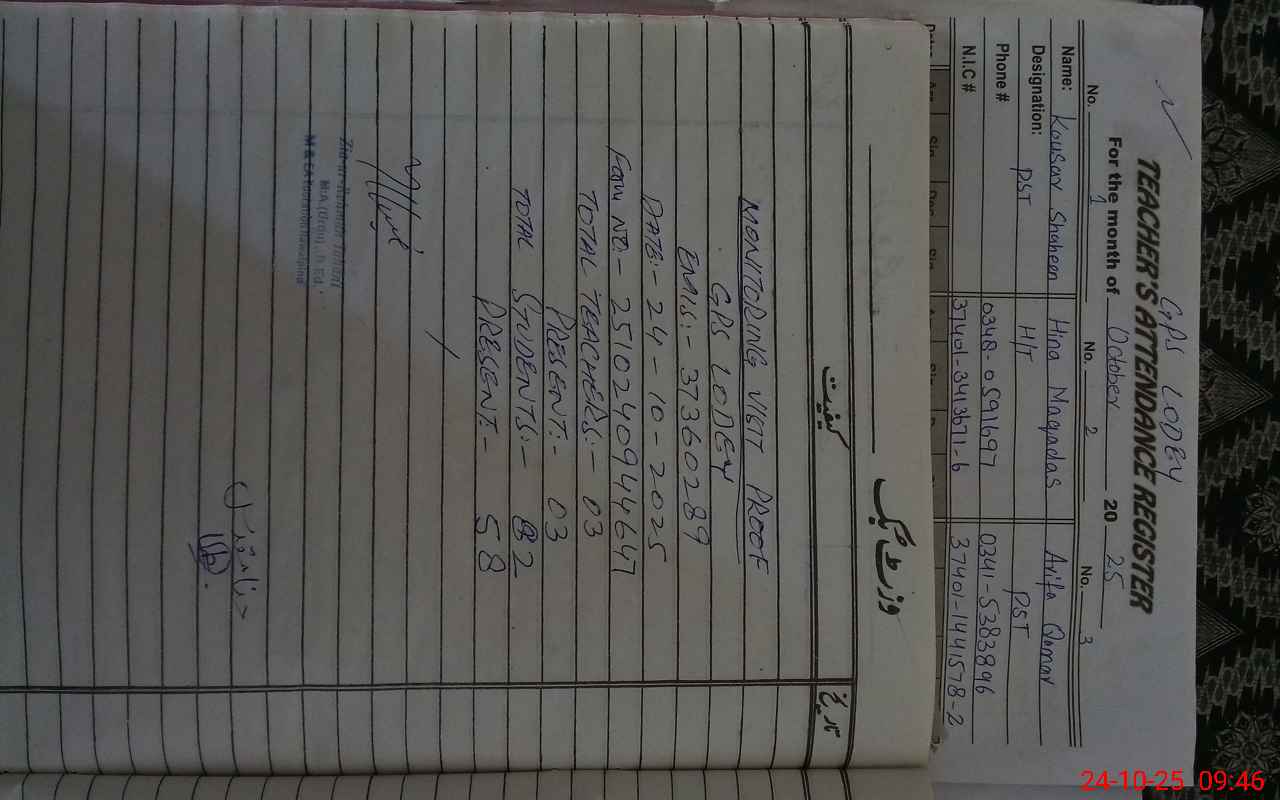 GPS LODEY
TEACHER'S ATTENDANCE REGISTER
For the month of October 2025
No. 1 No. 2 No. 3
Name: Kousar Shaheen Hina Maqadas Arifa Qamar
Designation: PST H/T PST
Phone # 0348-0591697 0341-5383896
N.I.C # 37401-3413671-6 37401-1441578-2
وزٹ بک
کیفیت تاریخ
MONITORING VISIT PROOF
GPS LODEY
EMIS:- 37360289
DATE:- 24-10-2025
Form NO:- 25102409444647
TOTAL TEACHERS:- 03
PRESENT:- 03
TOTAL STUDENTS:- 82
PRESENT:- 58
Zia-ur-Rehman
M.A (Urdu), B.Ed.
24-10-25 09:46